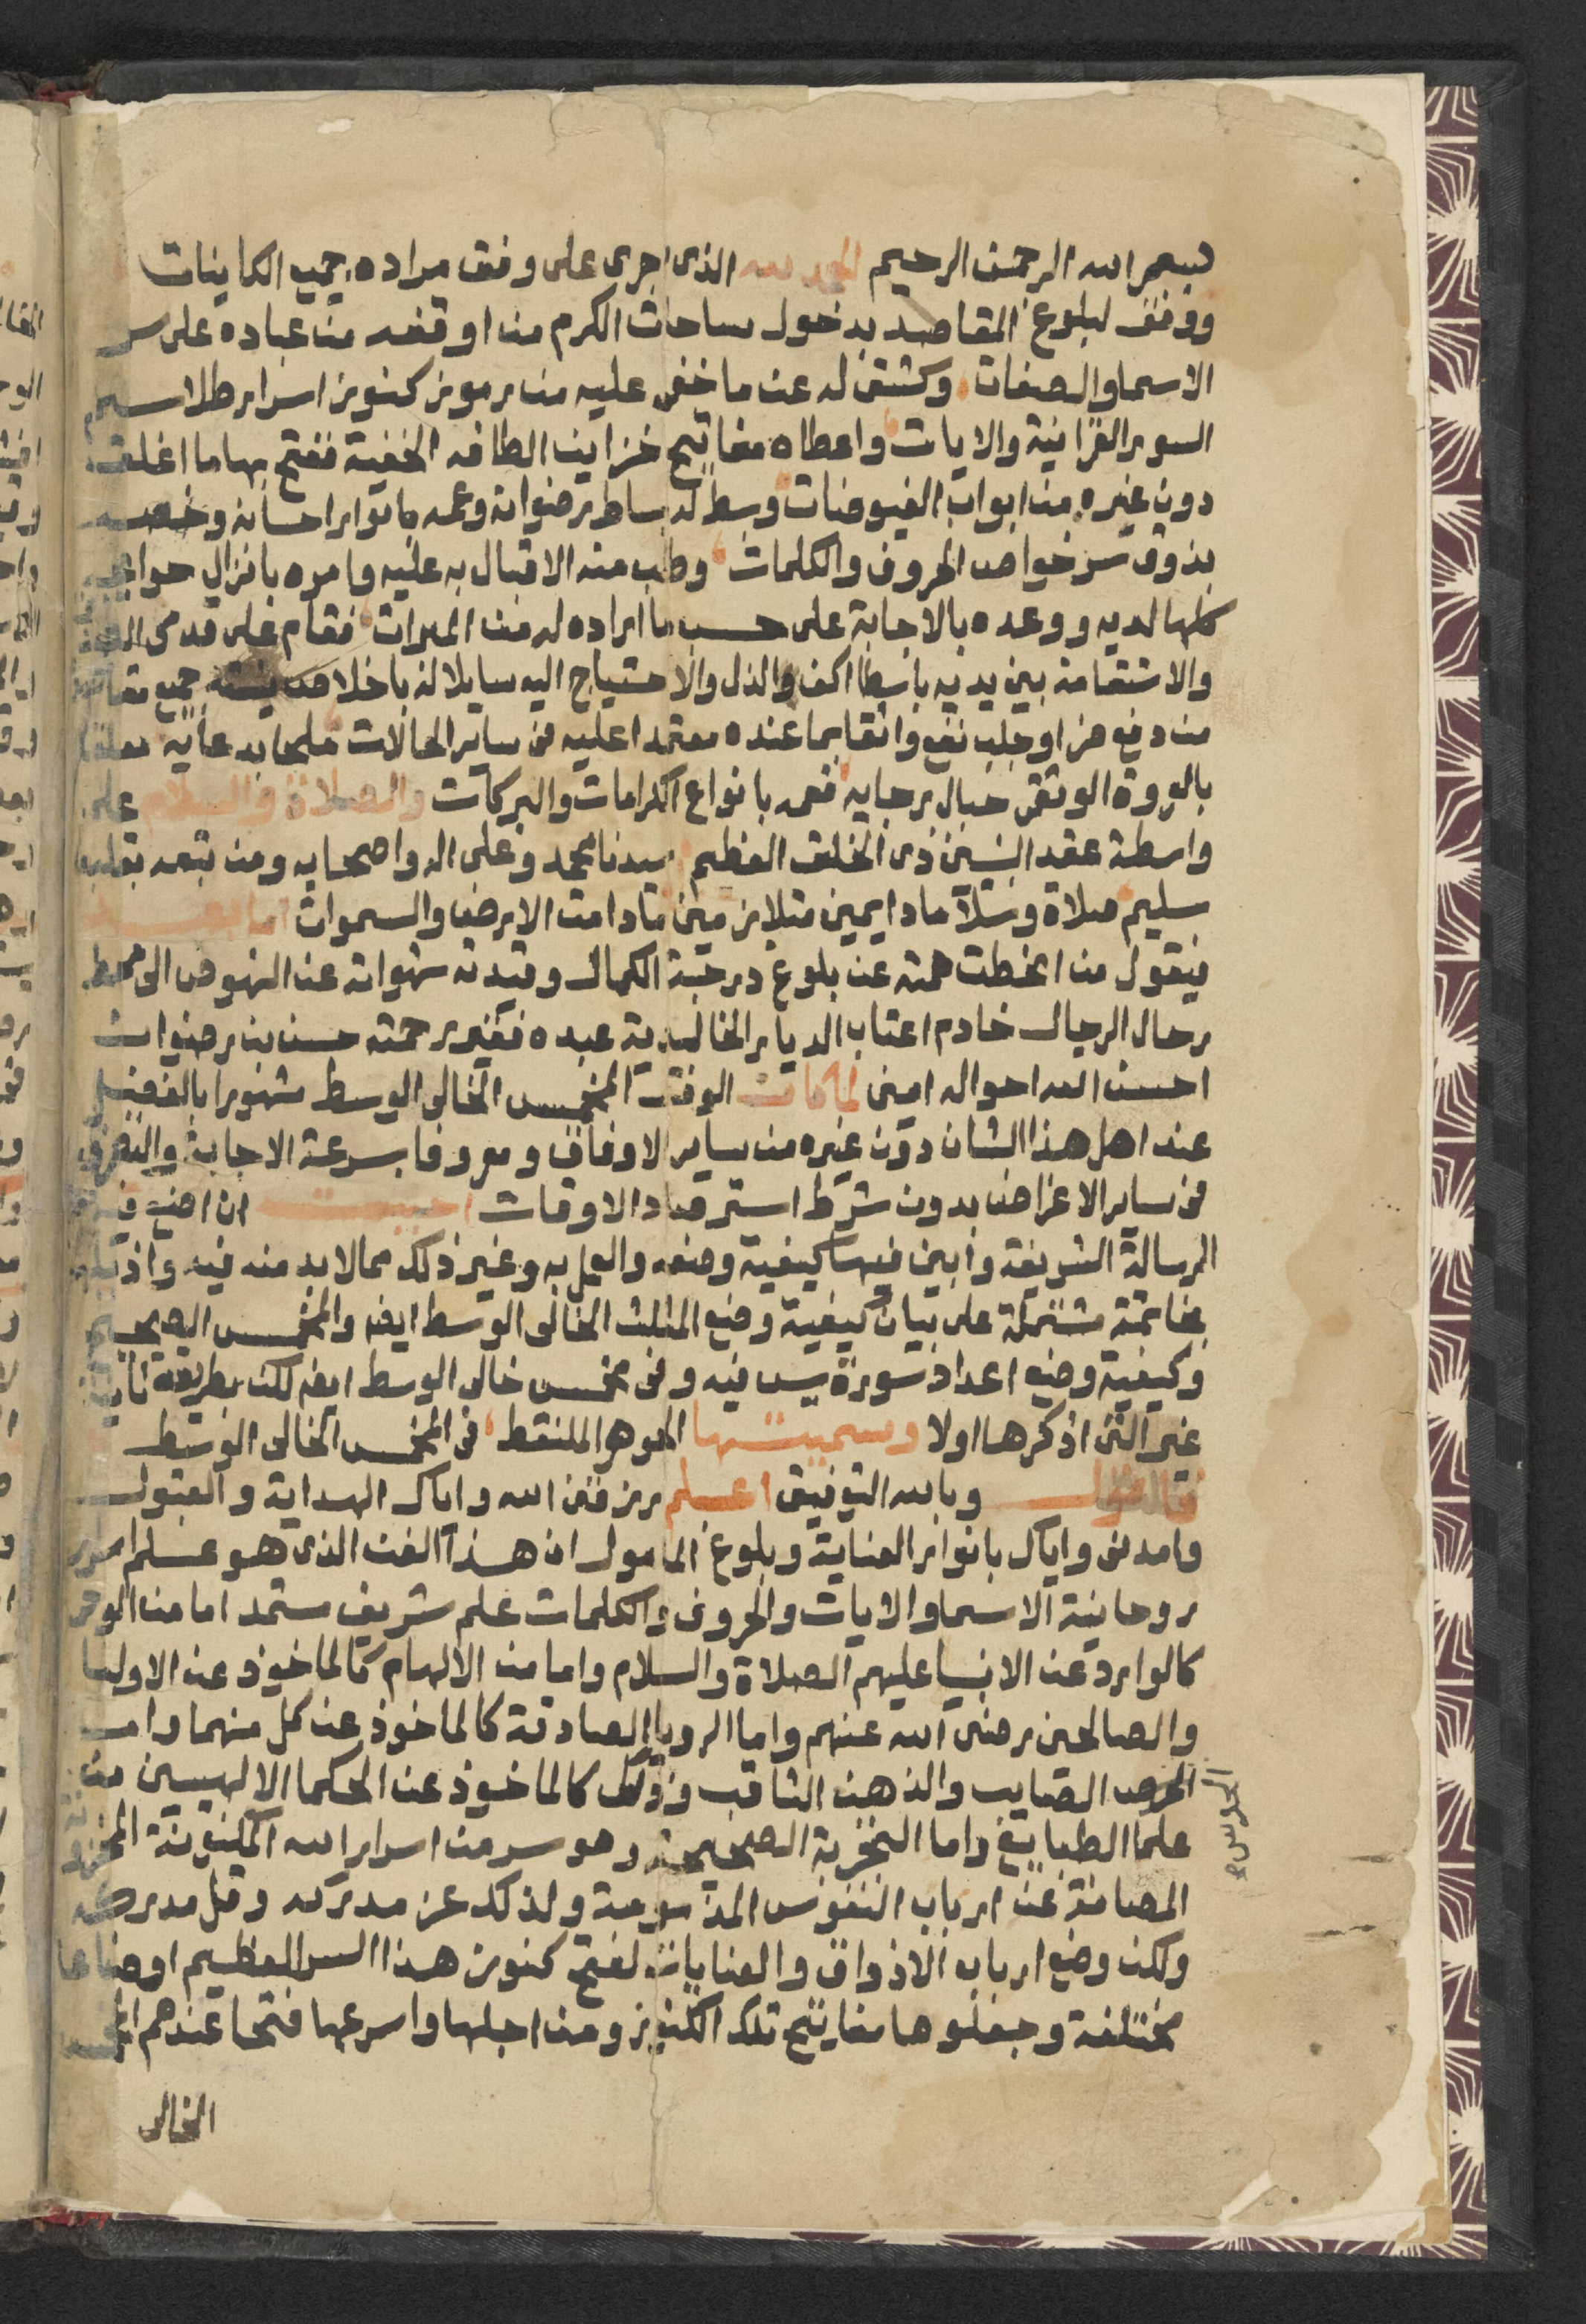 بسم الله الرحمن الرحيم الحمد لله الذى اجرى على وفق مراده جميع الكاينات
ووفق لبلوغ المقاصد بدخول ساحات الكرم من اوقفه من عباده على سر
الاسما والصفات وكشف له عن ما خفى عليه من رموز كنوز اسرار طلاسيم
السور القرانية والايات واعطاه مفاتيح خزاين الطافه الخفية ففتح بها ما اغلق
دون غيره من ابواب الفيوضات وبسط له بساط رضوانه وعمه بانوار احسانه وخصه
بذوق سر خواص الحروف والكلمات وطلب منه الاقبال به عليه وامره بانزال حوايجه
كلها لديه ووعده بالاجابة على حسب ما اراده له من المبرات فقام على قدمى
والاستقامة بين يديه باسطا اكف الذل والاحتياج اليه سايلا له باخلاص نيته جميع
من دفع ضر او جلب نفع واثقا بما عنده معتمدا عليه فى ساير الحالات ملحا بدعايه معلقا
بالعروة الوثقى حبال رجايه فعمه بانواع الكرامات والبركات والصلاة والسلام على
واسطة عقد النبيين ذى الخلق العظيم سيدنا محمد وعلى اله واصحابه ومن تبعه بقلب
سليم صلاة وسلاما دايمين متلازمين ما دامت الارض والسموات اما بعد
فيقول من انحطت همته عن بلوغ درجة الكمال وقيدته شهواته عن النهوض الى محط
رحال الرجال خادم اعتاب الديار الخالدية عبده فقير رحمته حسن بن رضوان
احسن الله احواله امين لما كان الوفق المخمس الخالى الوسط مشهورا بالفضل
عند اهل هذا الشان دون غيره من ساير الاوفاق ومعروفا بسرعة الاجابة والتصرف
فى ساير الاغراض بدون شرط استرصاد الاوقات احببت ان اضع فيه
الرسالة الشريفة وابين فيها كيفية وضعه والعمل به وغير ذلك مما لا بد منه فيه واذيلها
بخاتمة مشتملة على بيان كيفية وضع المثلث الخالى الوسط ايضا والمخمس الصحيح
وكيفية وضع اعداد سورة يس فيه وفى مخمس خالى الوسط ايضا لكن بطريقة ثانية
غير التى اذكرها اولا وسميتها الجوهر الملتقط فى المخمس الخالى الوسط
فاقول وبالله التوفيق اعلم رزقنى الله واياك الهداية والقبول
وامدنى واياك بانوار العناية وبلوغ المامول ان هذا الفن الذى هو علم اسرار
روحانية الاسما والايات والحروف والكلمات علم شريف مستمد اما من الوحى
كالوارد عن الانبيا عليهم الصلاة والسلام واما من الالهام كالماخوذ عن الاوليا
والصالحين رضى الله عنهم واما الرويا الصادقة كالماخوذ عن كل منهما واما
الحدس الصايب والذهن الثاقب وذلك كالماخوذ عن الحكما الالهيين من
علما الطبايع واما التجربة الصحيحة وهو سر من اسرار الله المكنونة المخزونة
المصانة عن ارباب النفوس المذمومة ولذلك عز مدركه وقل مدركه
ولكن وضع ارباب الاذواق والعنايات لفتح كنوز هذا السر العظيم اوضاعا
مختلفة وجعلوها مفاتيح تلك الكنوز ومن اجلها واسرعها فتحا عندهم
الخالى
الحدس